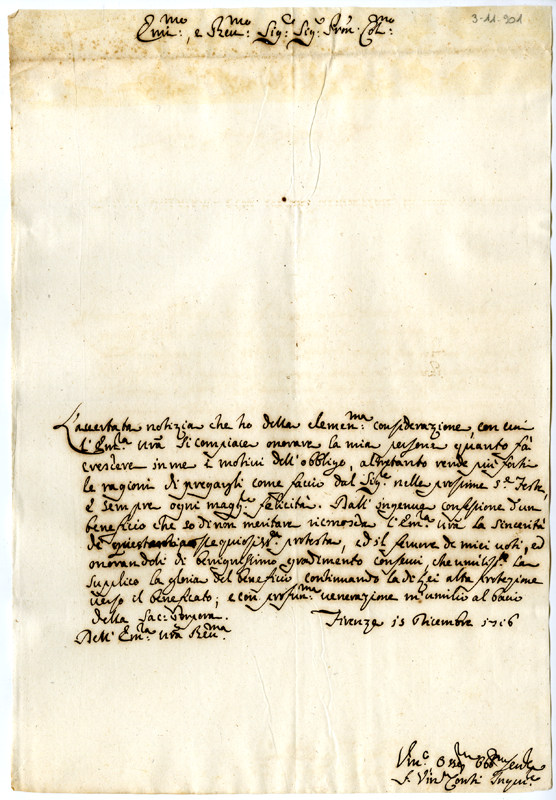 3-11-901
Em:mo, e Rev:mo Sig:r Sig:r Prôn Col:mo
L'avertata notizia che ho della clemen:ma considerazione, con cui
l'Em:za Vrã si compiace onorare la mia persona quanto fà
crescere in me i motivi dell'obbligo, altretanto rende più forti
le ragioni di pregargli come faccio dal Sig:re nelle prossime S:te Feste,
e sempre ogni magg:re felicità. Dall'ingenua confessione d'un
beneficio che so di non meritare riconosca l'Em:za Vrã la sincerità
di questa ossequiosiss:ma protesta, ed il fervore de miei voti, ed
onorandoli di benignissimo gradimento conservi, che umiliss:te la
supplico la gloria del beneficio continuando la di Lei alta protezione
verso il beneficato; e con profon:ma venerazione m'umilio al bacio
della Sac: Porpora.
Firenze 15 Dicembre 1716
Dell'Em:za Vrã Rev:ma
Um:o Dev:mo Obb:mo Serv:re
F. Vin:o Conti Inqui:re